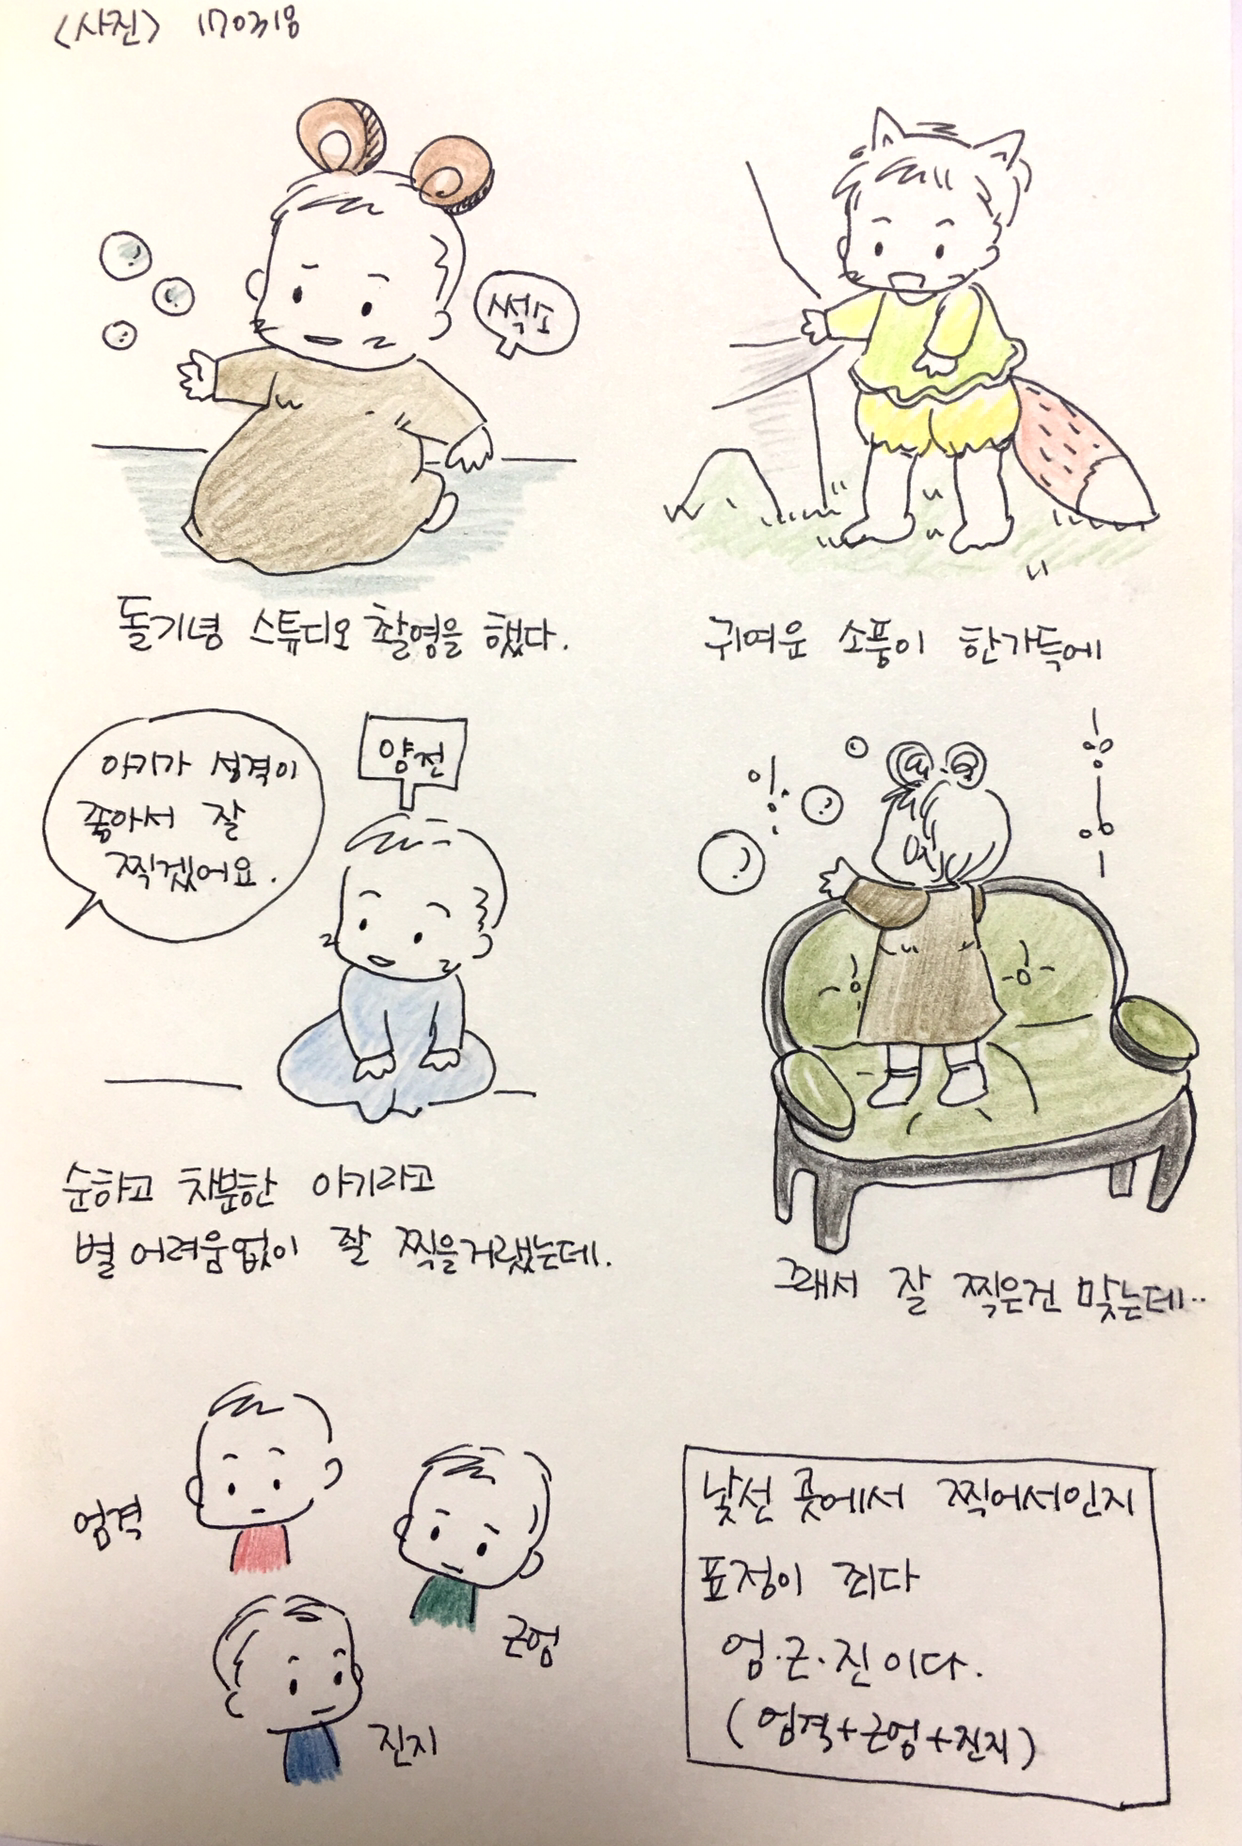 <사진> 170318
썩소
돌기념 스튜디오 촬영을 했다.
귀여운 소품이 한가득에
아기가 성격이
좋아서 잘
찍겠어요.
얌전
순하고 차분한 아기라고
별 어려움없이 잘 찍을거랬는데.
그래서 잘 찍은건 맞는데..
엄격
근엄
진지
낯선 곳에서 찍어서인지
표정이 죄다
엄.근.진이다.
(엄격+근엄+진지)